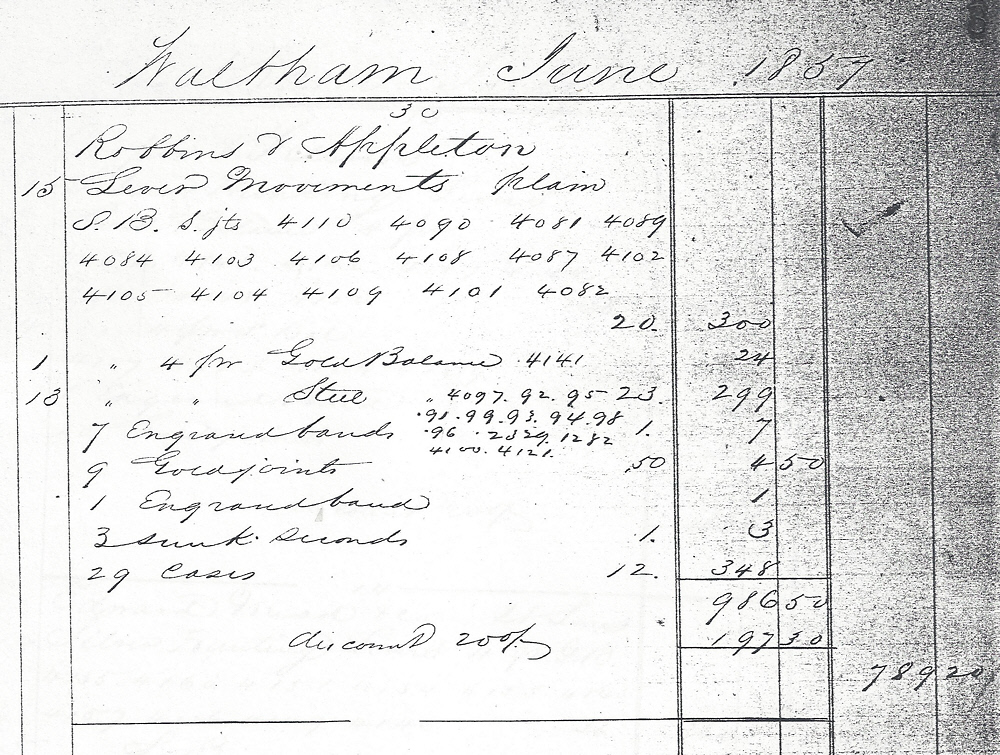 Waltham June 1857
30
Robbins & Appleton
15 Lever Movements plain
S. B. S. jts 4110 4090 4081 4089
4084 4103 4106 4108 4087 4102
4105 4104 4109 4101 4082
20. 300
1 " 4 pr Gold Balance 4141 24
13 " " Steel " 4097. 92. 95 23. 299
.91. 99. 93. 94. 98
7 Engraved bands .96 . 2329. 1282 1. 7
4100. 4121.
9 Gold joints .50 4 50
1 Engraved band 1
3 sunk seconds 1. 3
29 Cases 12. 348
986 50
discount 20 o/o 197 30
789 20